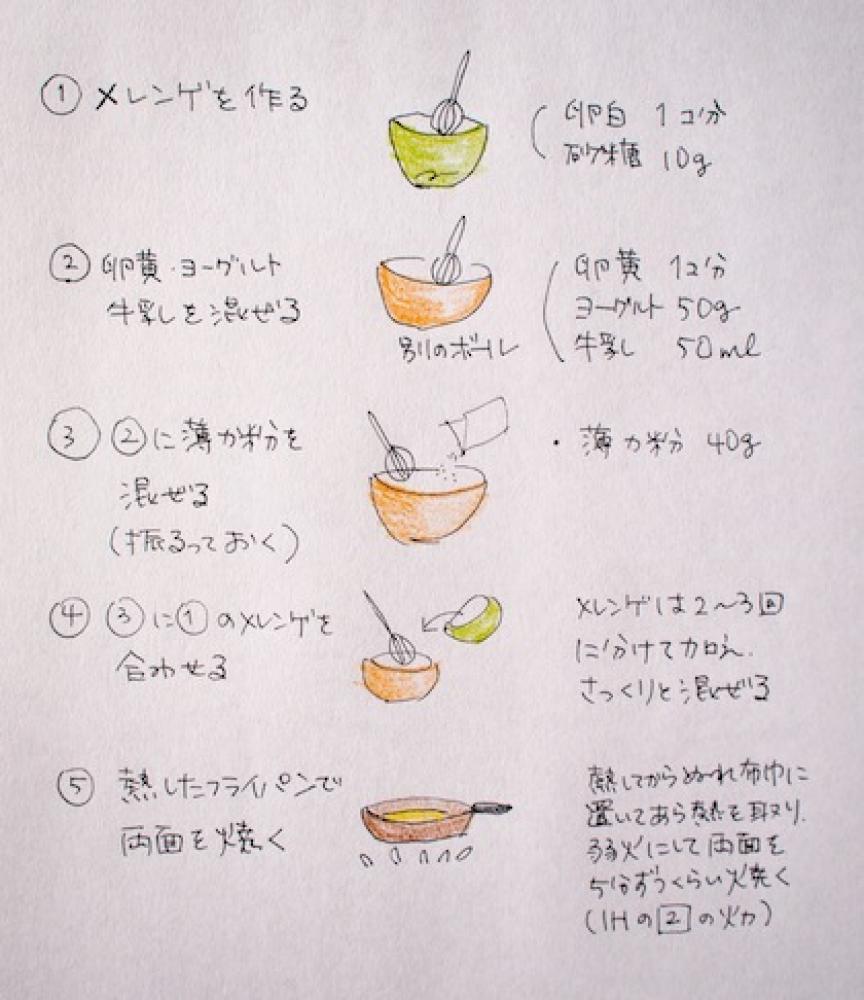 ① メレンゲを作る
卵白 1コ分
砂糖 10g
② 卵黄・ヨーグルト
牛乳を混ぜる
別のボール
卵黄 1コ分
ヨーグルト 50g
牛乳 50ml
③ ②に薄力粉を
混ぜる
(振るっておく)
・ 薄力粉 40g
④ ③に①のメレンゲを
合わせる
メレンゲは2〜3回
に分けて加え、
さっくりと混ぜる
⑤ 熱したフライパンで
両面を焼く
熱してからぬれ布巾に
置いてあら熱を取り、
弱火にして両面を
5分ずつくらい焼く
(IHの2の火力)